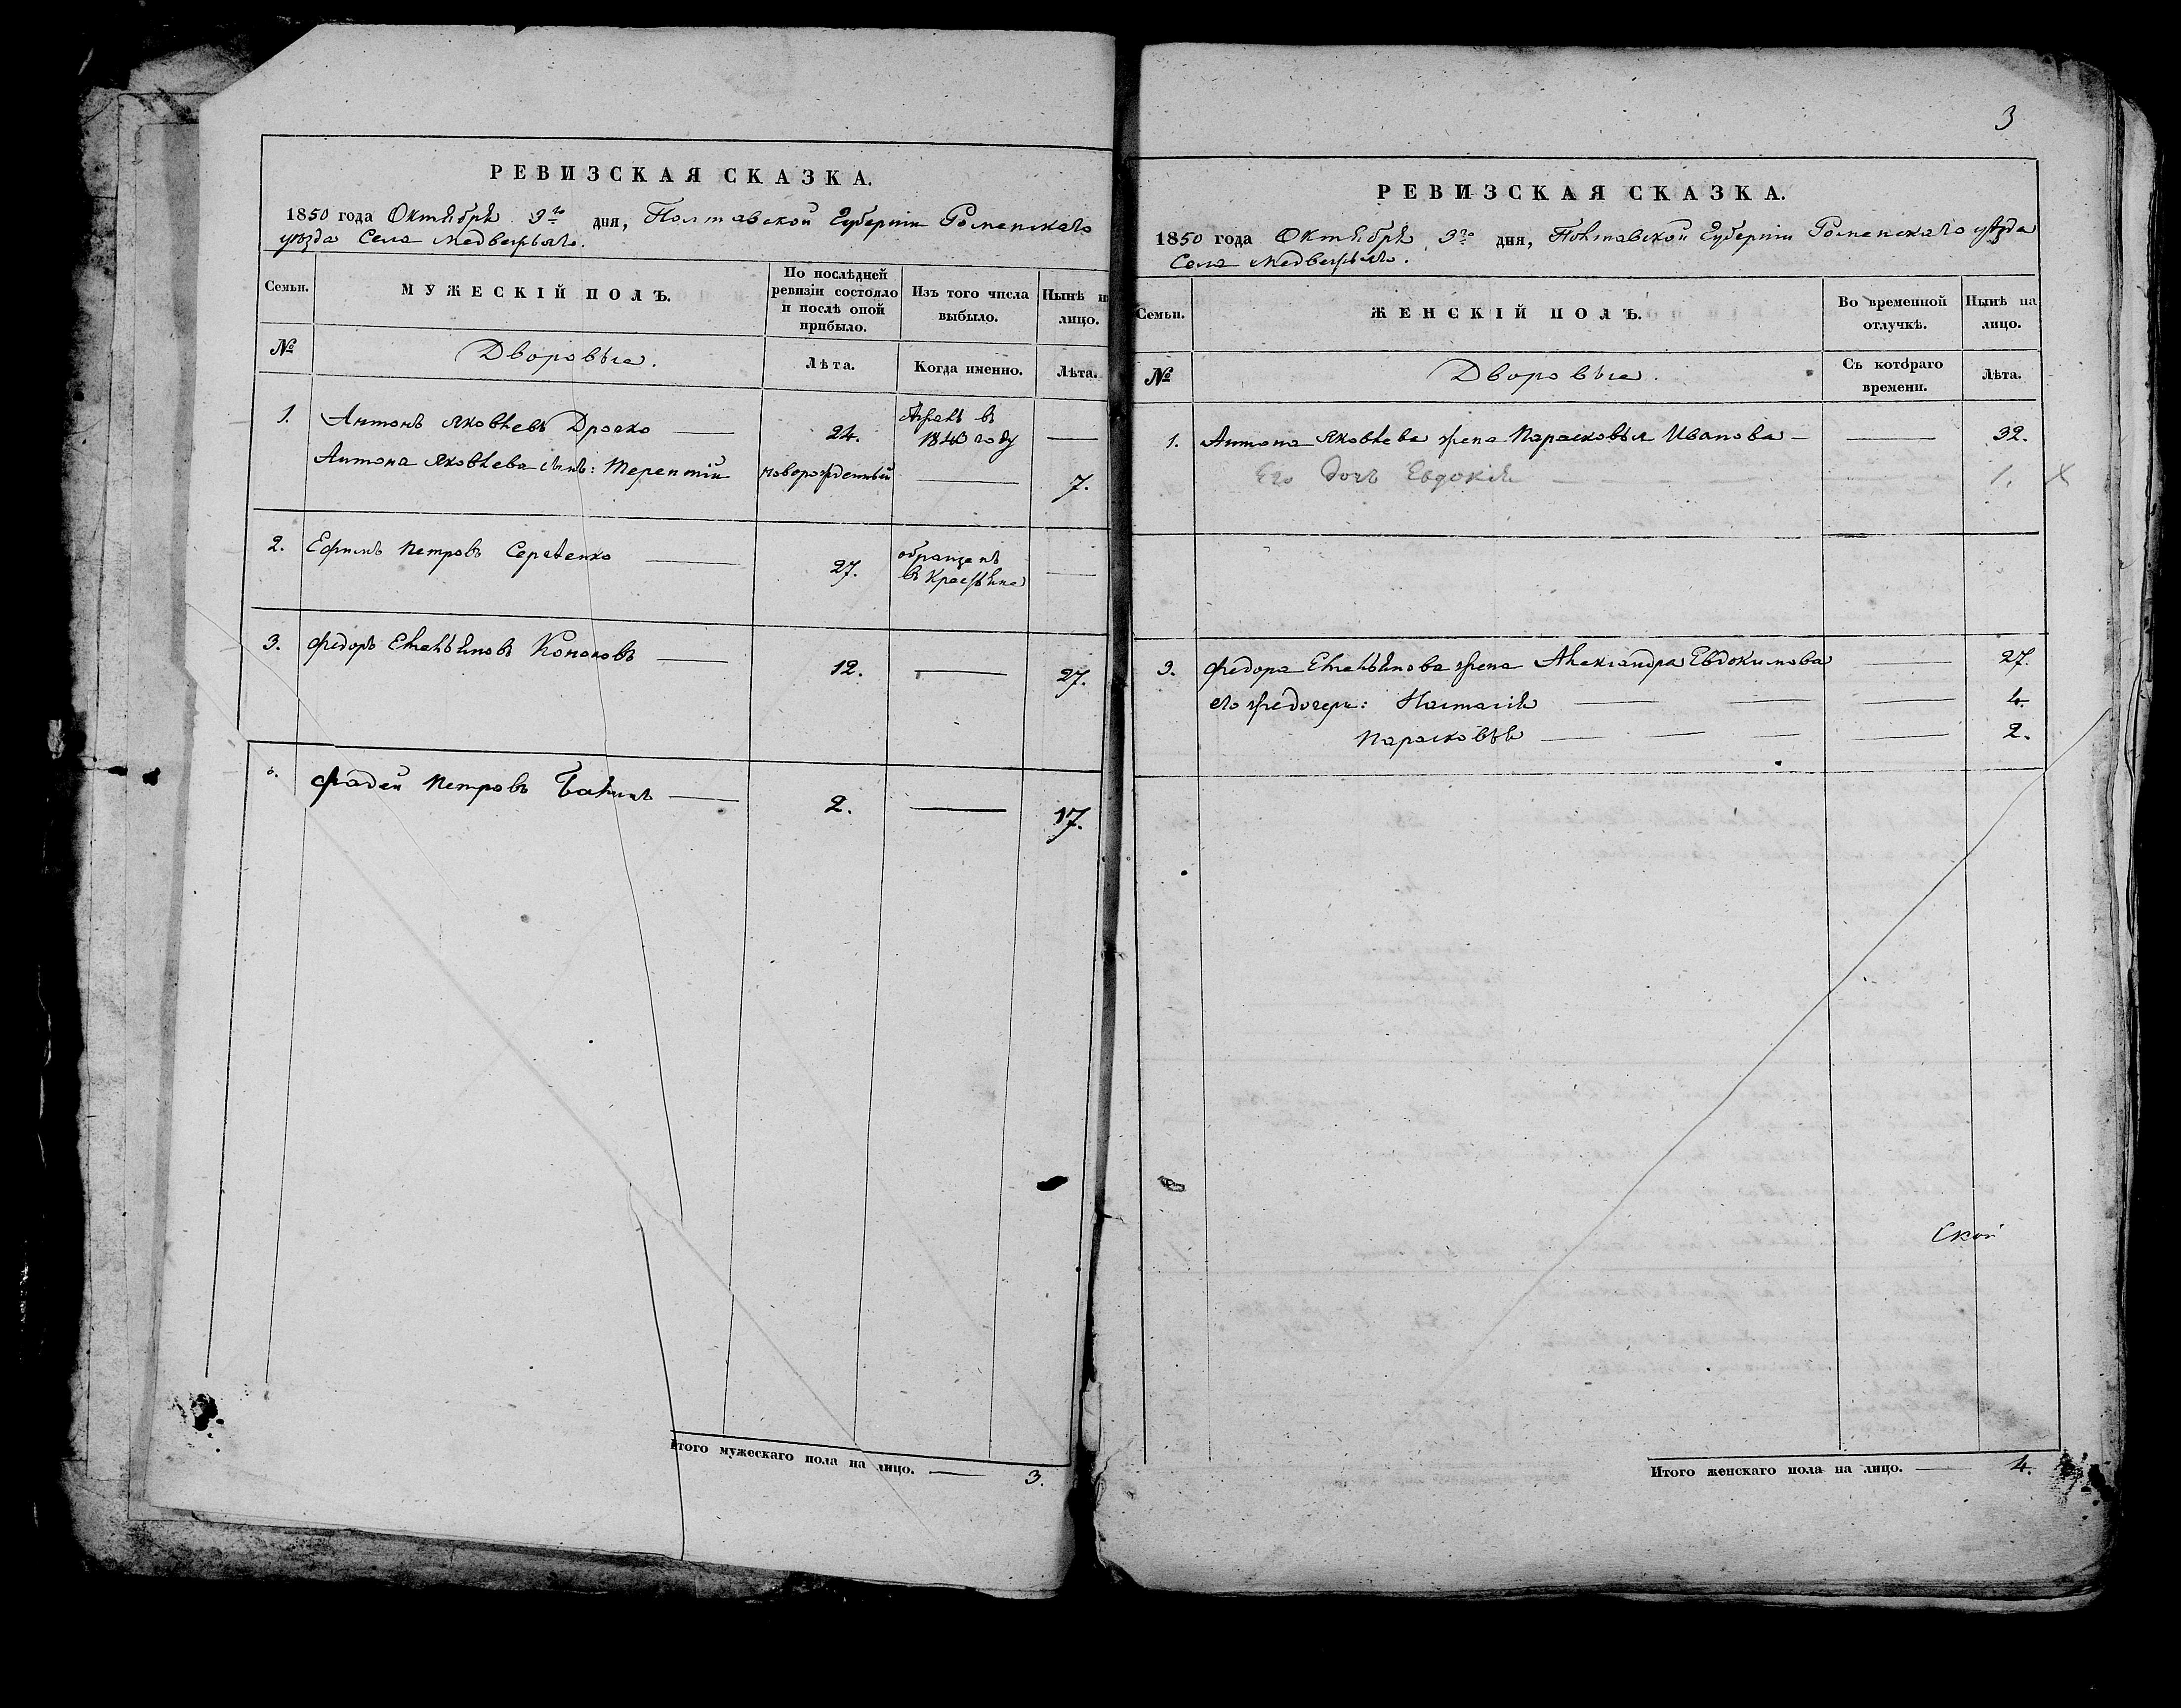 РЕВИЗСКАЯ СКАЗКА.
1850 года Октября 9го дня, Полтавской Губернии Роменскаго
уезда Села Медвежьяго.
Семьи.
МУЖЕСКІЙ ПОЛЪ.
По послѣдней
ревизіи состояло
и послѣ оной
прибыло.
Изъ того числа
выбыло.
Нынѣ н
лицо.
№
Дворовые.
Лѣта.
Когда именно.
Лѣта.
1. Антонъ Яковлевъ 24. в
1843 году
Антона Яковлева сынъ: Терентій новорожденный 7.
2. Ефимъ Петровъ 27. обращенъ
в
3. Федоръ Емельяновъ Кононовъ 12. 27.
Фадей Петровъ 2. 17.
Итого мужескаго пола на лицо. 3.
3
РЕВИЗСКАЯ СКАЗКА.
1850 года Октября 9го дня, Полтавской Губерніи Роменскаго уѣзда
Села Медвежьяго.
Семьи.
ЖЕНСКІЙ ПОЛЪ.
Во временной
отлучкѣ.
Нынѣ на
лицо.
№
Дворовые.
Съ котораго
времени.
Лѣта.
1. Антона Яковлева жена Парасковья Иванова 32.
Его дочь Евдокія 1. х
3. Федора Емельянова жена Александра Евдокимова 27.
его же дочери: Настасія 4.
Парасковья 2.
Ской
Итого женскаго пола на лицо. 4.